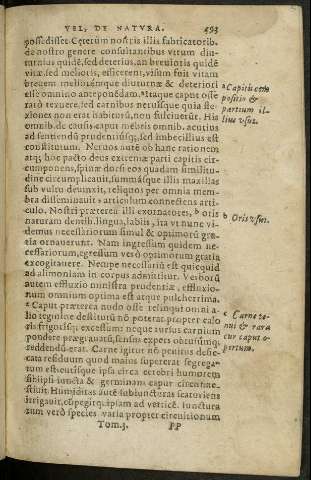 VEL, DE NATVRA. 593
possedisset. Ceterùm nostris illis fabricatorib.
de nostro genere consultantibus vtrum diu-
turnius quidē, sed deterius, an breuioris quidē
vitæ, sed melioris, efficerent, visum fuit vitam
breuem meliorémque diuturnæ & deteriori
esse omnino anteponēdam. ᵃItaque caput osse
rarò texuere, sed carnibus neruisque quia fle-
xiones non erat habiturū, non fulciuerūt. His
omnib. de causis caput mēbris omnib. acutius
ad sentiendū prudentiúsq;, sed imbecillius est
constitutum. Neruos autē ob hanc rationem
atq; hoc pacto deus extremæ parti capitis cir-
cumponens, spinæ dorseos quadam similitu-
dine circumplicauit, summásque illis maxillas
sub vultu deuinxit, reliquos per omnia mem-
bra disseminauit ᵇ articulum connectens arti-
culo. Nostri præterea illi exornatores, ᵇ oris
naturam dentib. lingua, labiis, ita vt nunc vi-
demus necessariorum simul & optimorū gra-
tia ornauerunt. Nam ingressum quidem ne-
cessariorum, egressum verò optimorum gratia
excogitauere. Necque necessariū est quicquid
ad alimoniam in corpus admittitur. Verborū
autem effluxio ministra prudentiæ, effluxio-
num omnium optima est atque pulcherrima.
ᶜCaput præterea nudo osse relinqui omni a-
lio tegmine destitutū nō poterat propter calo
ris frigorisq; excessum: neque rursus carnium
pondere prægrauatū, sensus expers obtusumq;
reddendū erat. Carne igitur nō penitus desic-
cata residuum quod maius supererat segrega-
tum est: cutisque ipsa circa cerebri humorem
sibiipsi iuncta & germinans caput circunue-
stiuit. Humiditas autē sub iuncturas scaturiens
irrigauit, cōpegitq; ipsam ad verticē. Iunctura
rum verò species varia propter circuitionum
Tom.3. PP
a Capitis cōpositio &
partium il-
lius vsus.
b Oris vsus.
c Carne te-
nui & rara
cur caput o-
pertum.